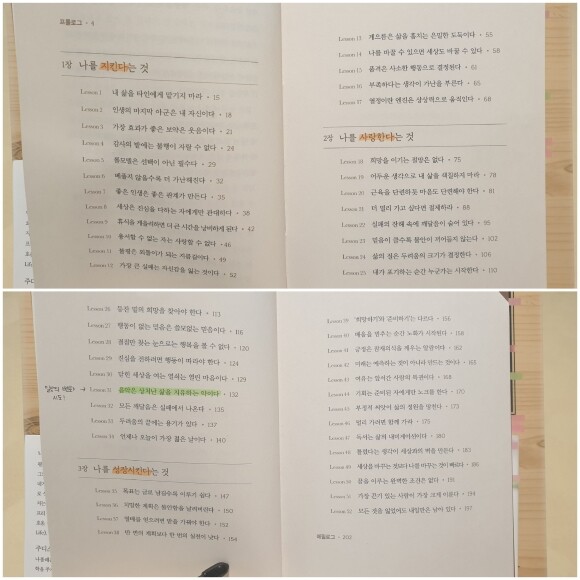 프롤로그 • 4
1장 나를 지킨다는 것
Lesson 1 내 삶을 타인에게 맡기지 마라 • 15
Lesson 2 인생의 마지막 아군은 내 자신이다 • 18
Lesson 3 가장 효과가 좋은 보약은 웃음이다 • 21
Lesson 4 감사의 밭에는 불행이 자랄 수 없다 • 24
Lesson 5 롤모델은 선택이 아닌 필수다 • 29
Lesson 6 베풀지 않을수록 더 가난해진다 • 32
Lesson 7 좋은 인생은 좋은 관계가 만든다 • 35
Lesson 8 세상은 진심을 다하는 자에게만 관대하다 • 38
Lesson 9 휴식을 게을리하면 더 큰 시간을 낭비하게 된다 • 42
Lesson 10 용서할 수 없는 자는 사랑할 수 없다 • 46
Lesson 11 불평은 외톨이가 되는 지름길이다 • 49
Lesson 12 가장 큰 실패는 자신감을 잃는 것이다 • 52
Lesson 13 게으름은 삶을 훔치는 은밀한 도둑이다 • 55
Lesson 14 나를 바꿀 수 있으면 세상도 바꿀 수 있다 • 58
Lesson 15 품격은 사소한 행동으로 결정된다 • 61
Lesson 16 부족하다는 생각이 가난을 부른다 • 65
Lesson 17 열정이란 엔진은 상상력으로 움직인다 • 68
2장 나를 사랑한다는 것
Lesson 18 희망을 이기는 절망은 없다 • 75
Lesson 19 어두운 생각으로 내 삶을 색칠하지 마라 • 78
Lesson 20 근육을 단련하듯 마음도 단련해야 한다 • 81
Lesson 21 더 멀리 가고 싶다면 절제하라 • 88
Lesson 22 실패의 잔해 속에 깨달음이 숨어 있다 • 95
Lesson 23 믿음이 클수록 불안이 작아지는 않는다 • 102
Lesson 24 삶의 질은 두려움의 크기가 결정한다 • 106
Lesson 25 내가 포기하는 순간 누군가는 시작한다 • 110
Lesson 26 등잔 밑의 희망을 찾아야 한다 • 113
Lesson 27 행동이 없는 믿음은 쓸모없는 믿음이다 • 116
Lesson 28 결점만 찾는 눈으로는 행복을 볼 수 없다 • 120
Lesson 29 진심을 전하려면 행동이 따라야 한다 • 124
Lesson 30 닫힌 세상을 여는 열쇠는 열린 마음이다 • 129
Lesson 31 음악은 망쳐진 삶을 치유하는 약이다 • 132
Lesson 32 모든 깨달음은 실패에서 나온다 • 135
Lesson 33 두려움의 끝에는 용기가 있다 • 137
Lesson 34 언제나 오늘이 가장 젊은 날이다 • 140
3장 나를 성장시킨다는 것
Lesson 35 목표는 글로 남길수록 이루기 쉽다 • 147
Lesson 36 치밀한 계획은 불안함을 날려버린다 • 150
Lesson 37 열매를 얻으려면 밭을 가꿔야 한다 • 152
Lesson 38 만 번의 계획보다 한 번의 실천이 낫다 • 154
Lesson 39 '희망하기'와 '준비하기'는 다르다 • 156
Lesson 40 배움을 멈추는 순간 노화가 시작된다 • 158
Lesson 41 긍정은 잠재의식을 깨우는 알람이다 • 162
Lesson 42 미래는 예측하는 것이 아니라 만드는 것이다 • 165
Lesson 43 여유는 앞서간 사람의 특권이다 • 168
Lesson 44 기회는 준비된 자에게만 노크를 한다 • 170
Lesson 45 부정적 씨앗이 삶의 정원을 망친다 • 173
Lesson 46 멀리 가려면 함께 가라 • 175
Lesson 47 독서는 삶의 내비게이션이다 • 180
Lesson 48 틀렸다는 생각이 세상과의 벽을 만든다 • 183
Lesson 49 세상을 바꾸는 것보다 나를 바꾸는 것이 빠르다 • 186
Lesson 50 꿈을 이루는 완벽한 조건은 없다 • 191
Lesson 51 가장 끈기 있는 사람이 가장 크게 이룬다 • 194
Lesson 52 모든 것을 잃었어도 내일만은 남아 있다 • 197
에필로그 • 202